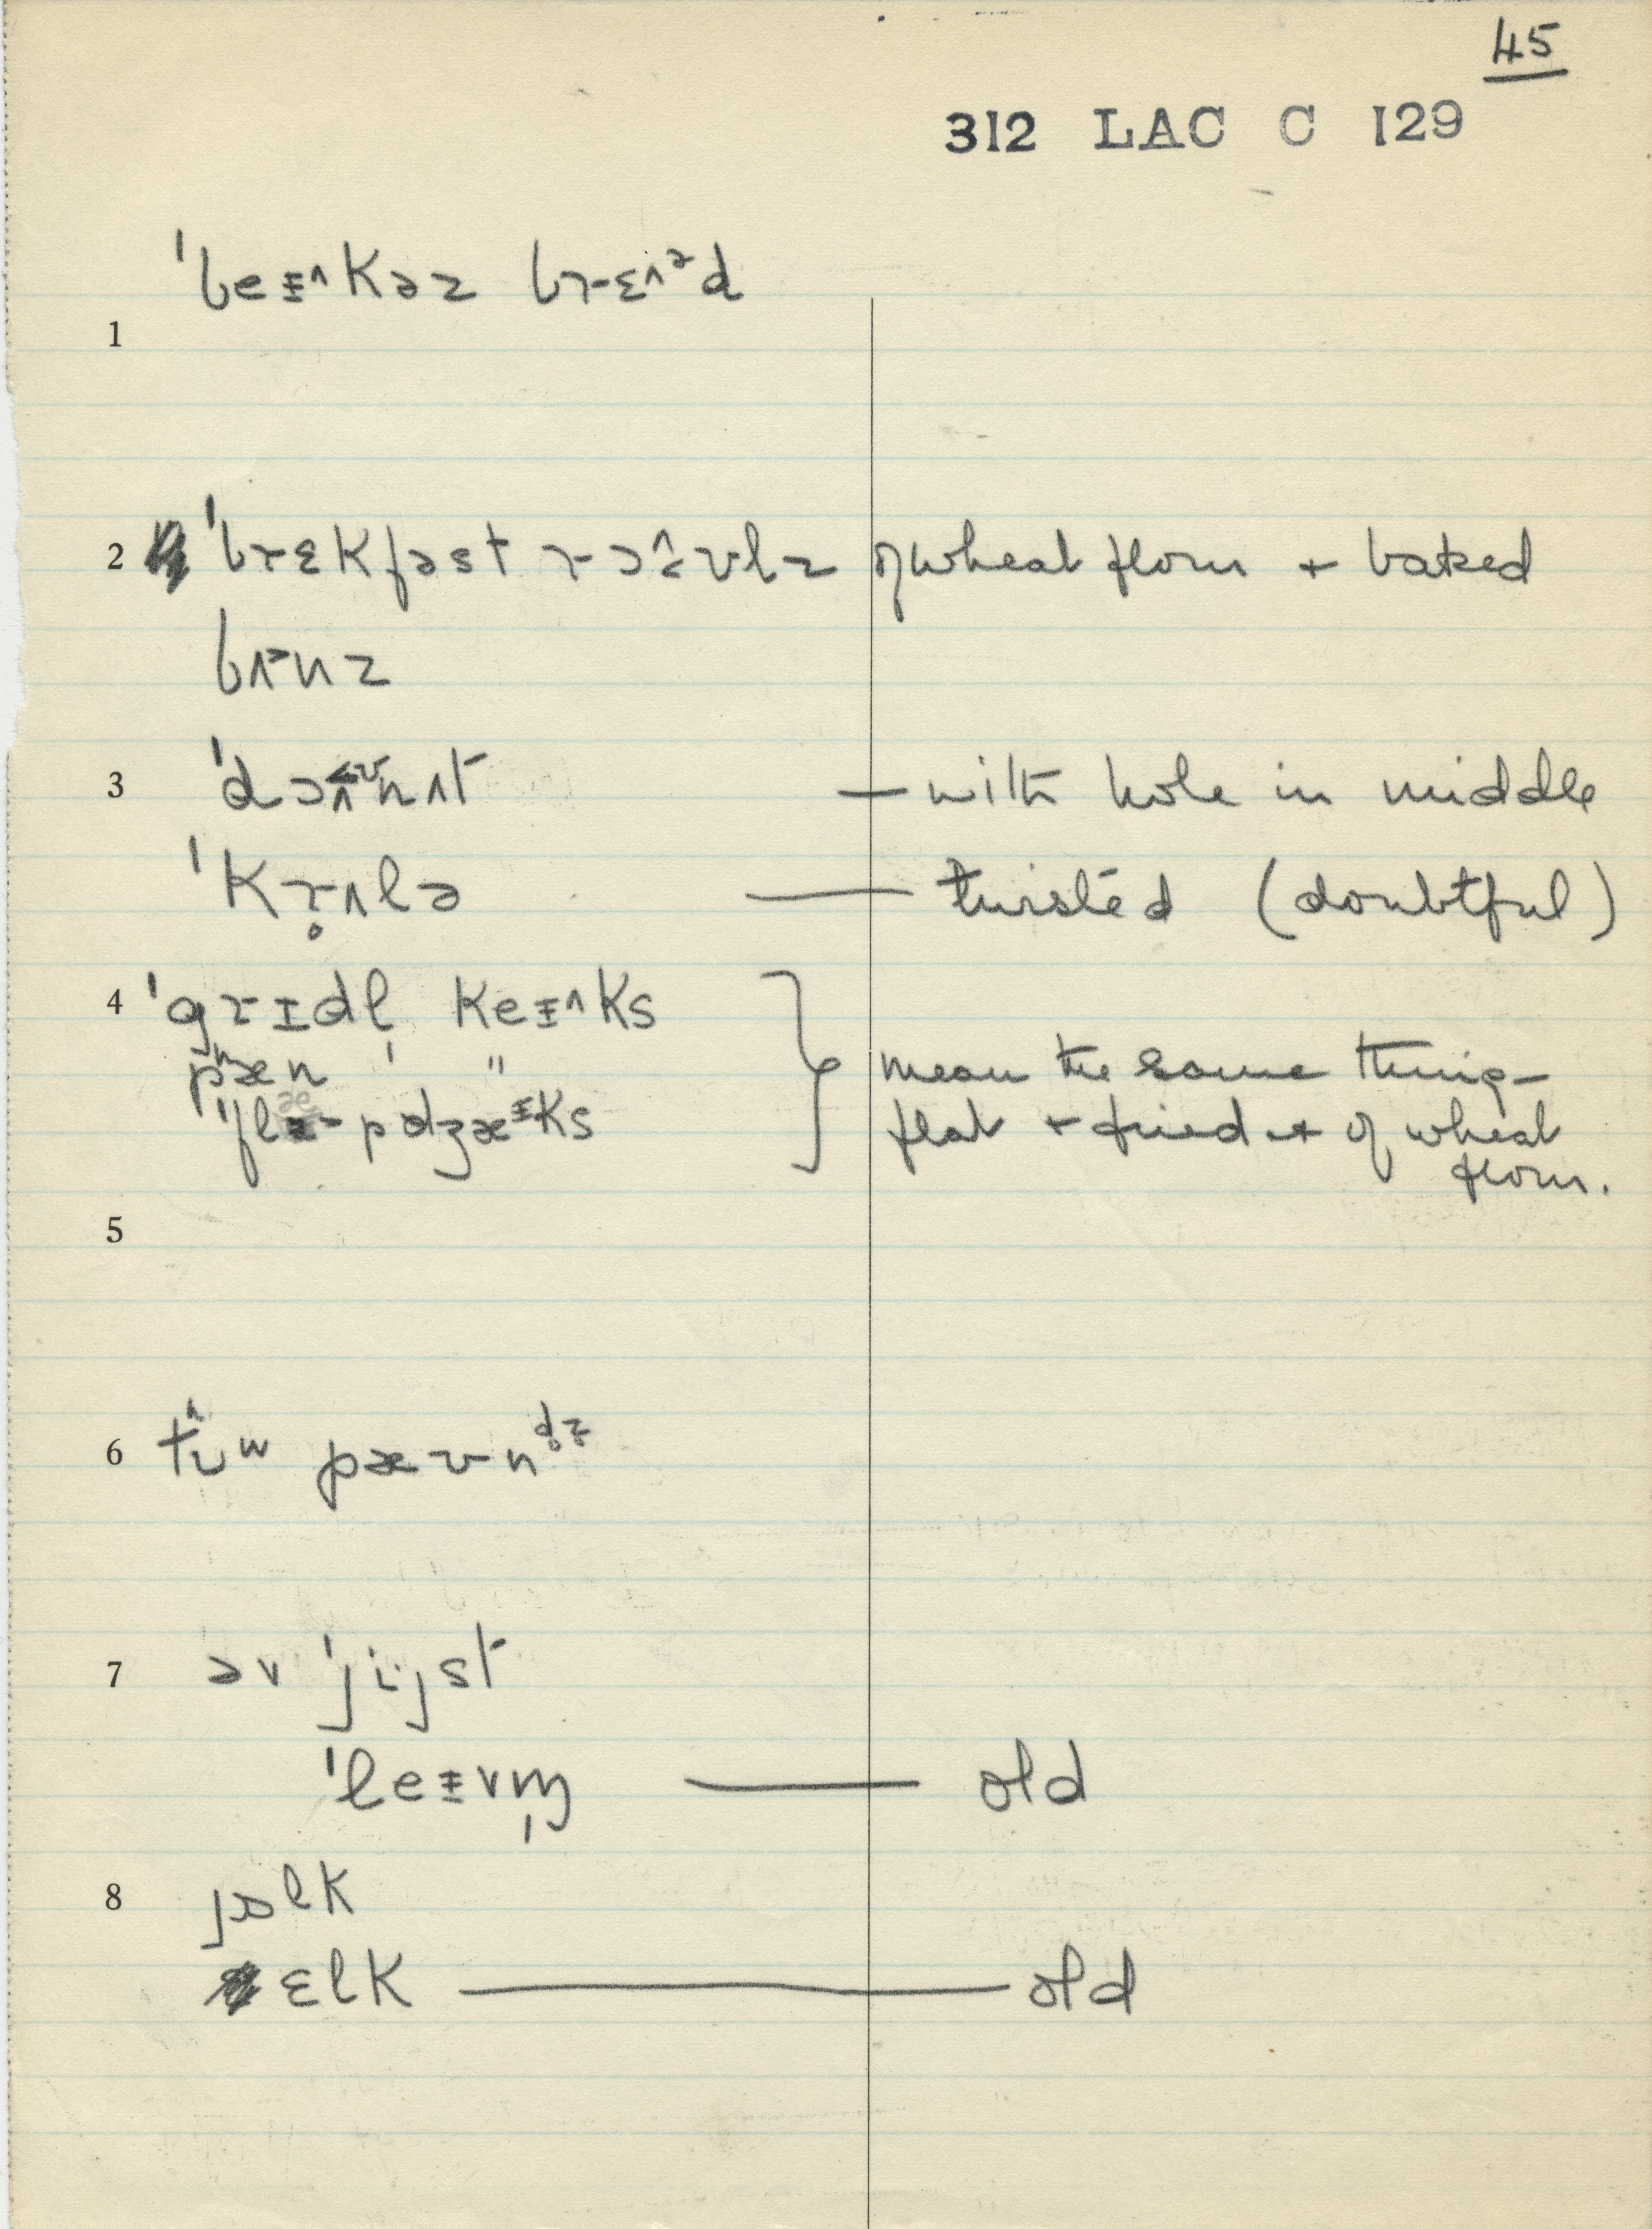 45
312 LAC C 129
1 ˈbeɪ^kəz brɛ^ᵊd
2 ˈbrɛkfəst rɔ^ʊlz of wheat flour + baked
bʌnz
3 ˈdɔ^ʊnʌt — with hole in middle
ˈkr̥ʌlə — twisted (doubtful)
4 ˈgrɪdl̩ keɪ^ks
pʰæn " mean the same thing –
ˈflæpdʒæᶦks flat + fried + of wheat
flour.
5
6 tʊʷ pæʊnᵈᶻ
7 əv ˈjijst
ˈleɪvm̩ — old
8 jɒlk
ɛlk — old